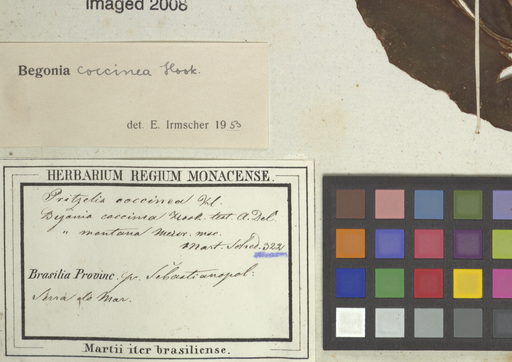 Imaged 2008
Begonia coccinea Hook.
det. E. Irmscher 1953
HERBARIUM REGIUM MONACENSE.
Pritzelia coccinea Kl.
Begonia coccinea Hook. test. A. Del.
" montana Meisr. msc.
Mart. Sched. 322
Brasilia Provinc. Sebastianopol:
Serra do Mar.
Martii iter brasiliense.